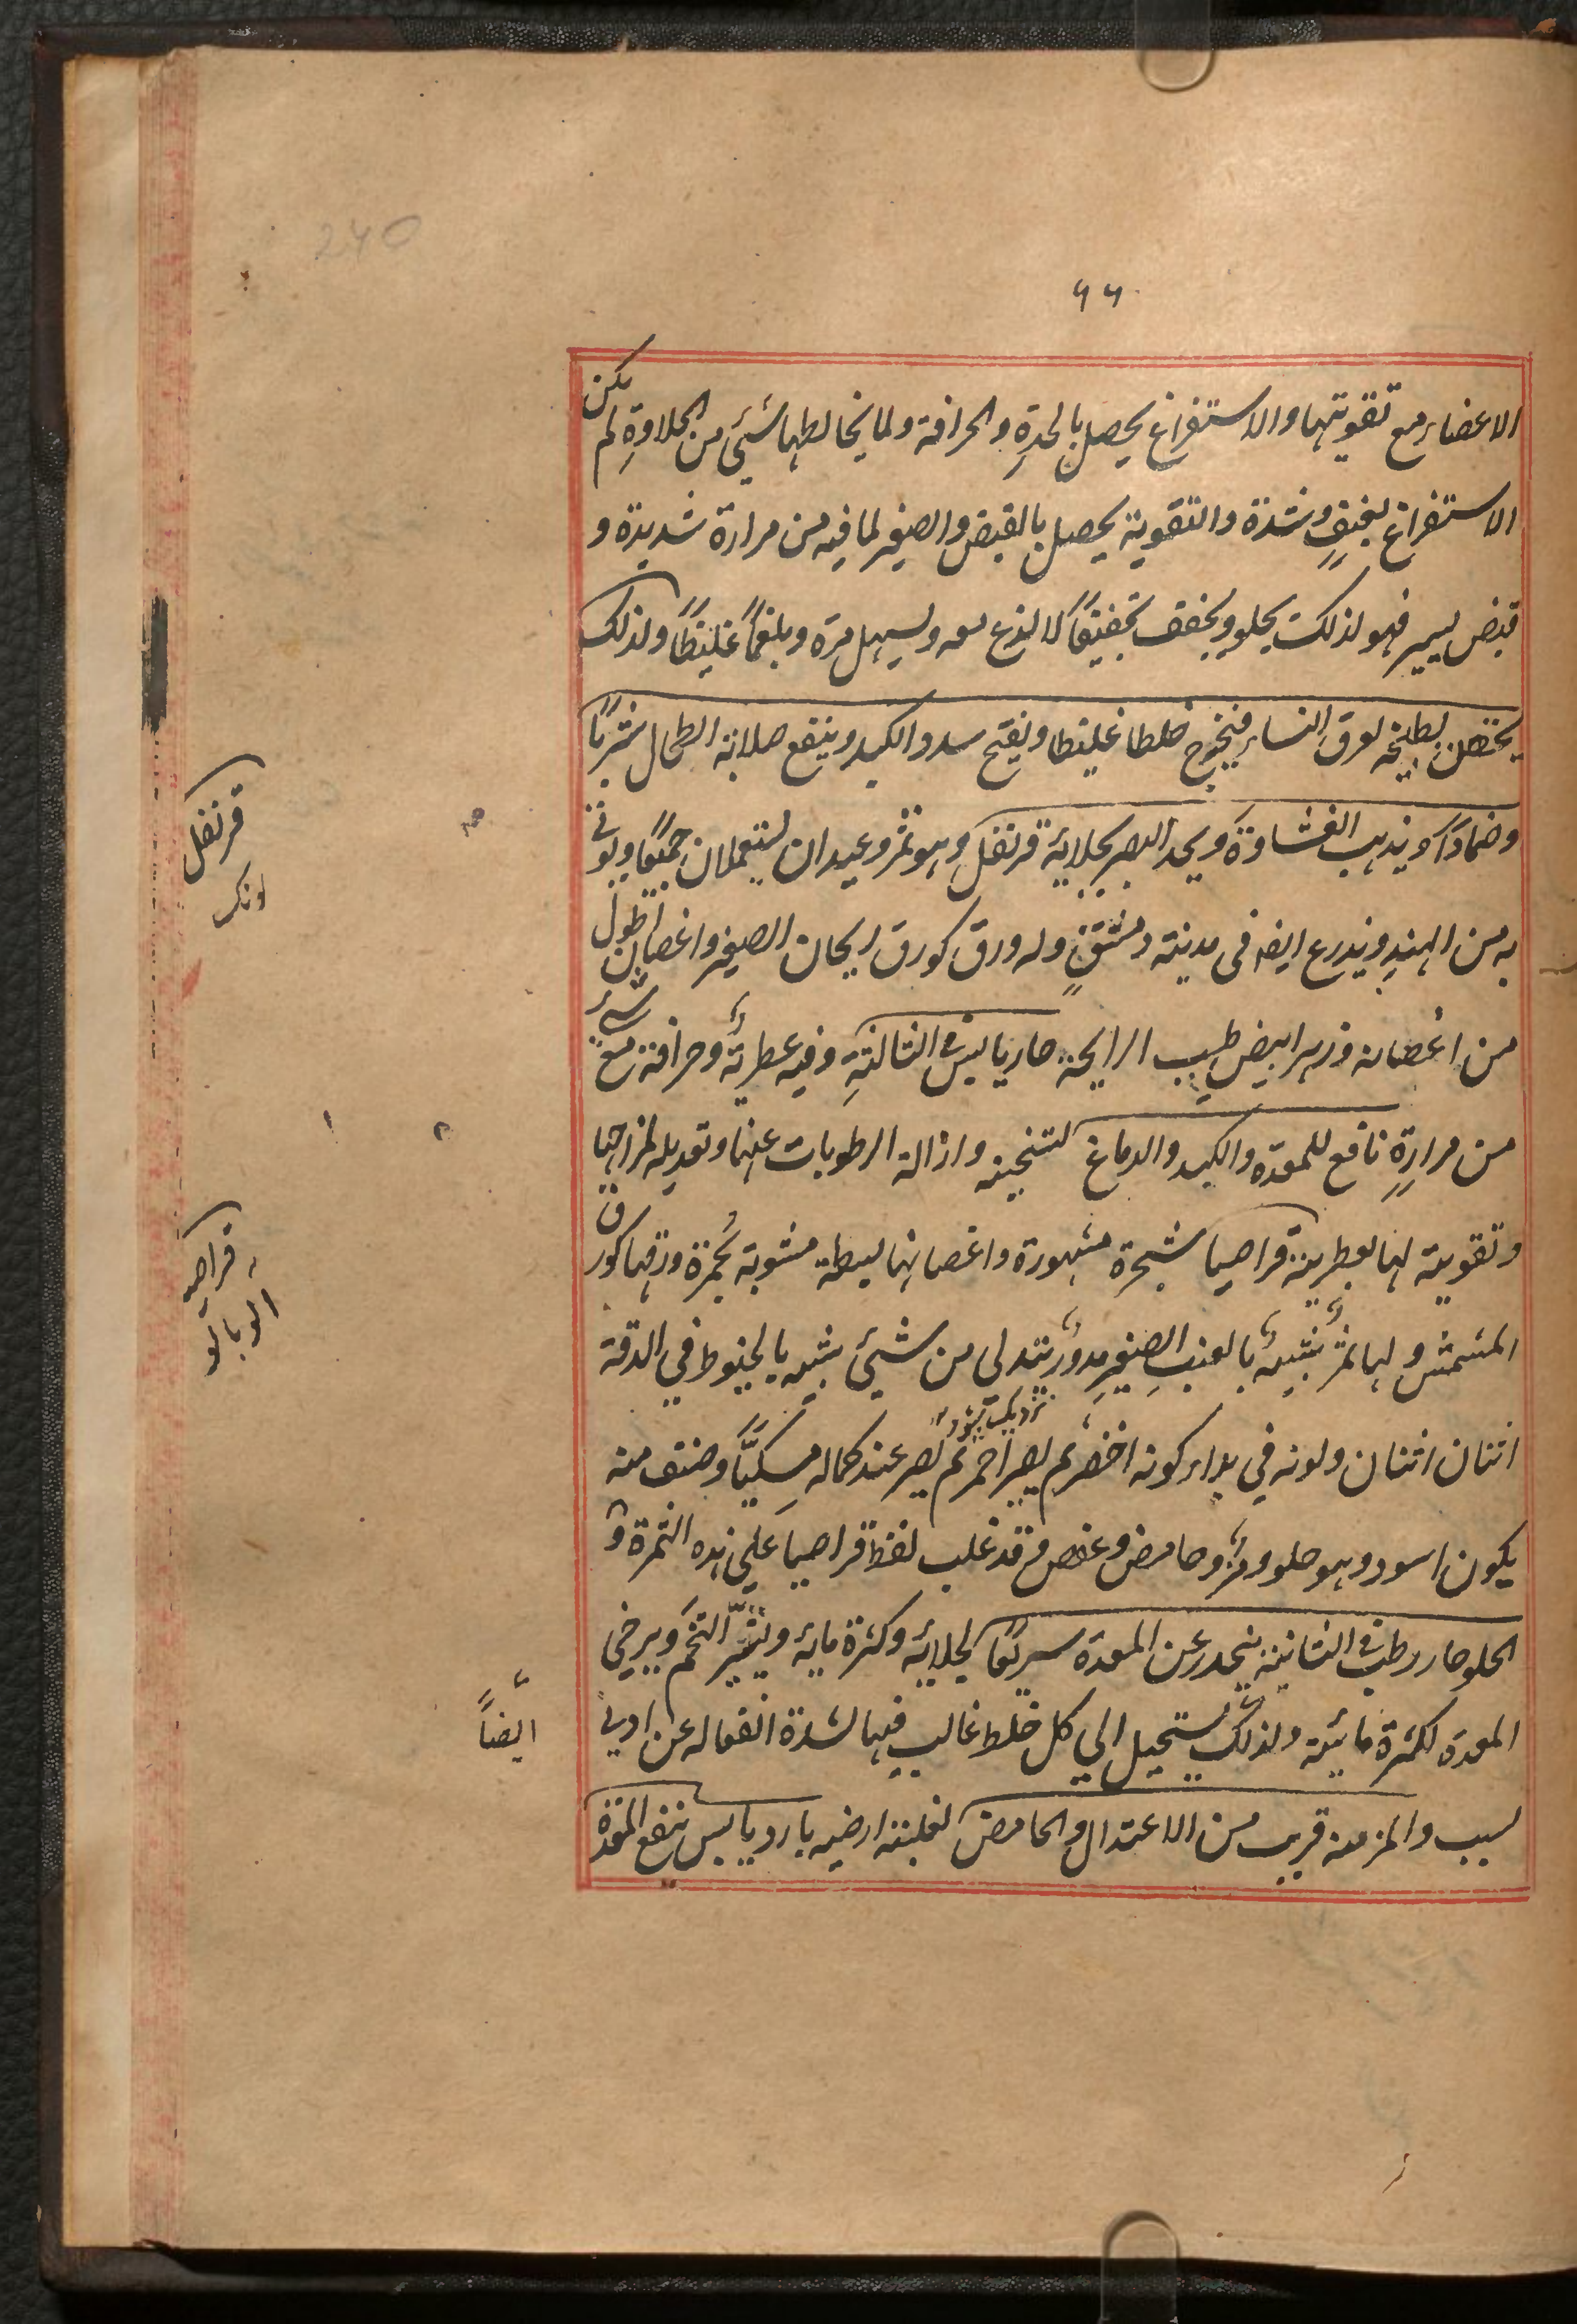 240
۶۶
الاعضاء مع تقويتها والاستفراغ يحصل بالحدةِ والحرافة ولما يخالطهما شيئ من الحلاوةِ لم يكن
الاستفراغ بعنفٍ وشدة والتقوية يحصل بالقبض والصغير لما فيه من مرارة شديدة و
قبض يسير فهو لذلك يجلو ويجفف تجفيفًا لا لذع معه ويسهل مرة وبلغمًا غليظًا ولذلك
يحتقن بطبيخه لعرق النساء فيخرج خلطا غليظا ويفتح سدد الكبد وينفع صلابة الطحال شربًا
وضمادًا ويذهب الغشاوة ويحد البصر بجلائه قرنفل وهو ثمر وعيدان يستعملان جميعًا ويوتى
به من الهند ويزرع ايضه فى مدينة دمشق وله ورق كورق ريحان الصغير واغصان اطول
من اغصانه وزهر ابيض طيب الرايحة حار يابس فى الثالثةِ وفيه عطرية وحرافة مع شئ
من مرارةٍ نافع للمعدة والكبد والدماغ لتسخينه وازالة الرطوبات عنها وتعديله لمزاجها
وتقويته لها بعطريته قراصيا شجرة مشهورة واغصانها بسيطة مشوبة بحمرة ورقها كورق
المشمش ولها ثمرٌ شبيهٌ بالعنبِ الصغيرِ مدورٌ يتدلى من شيئ شبيه بالخيوط في الدقة
نزديك بسود
اثنان اثنان ولونه في بداء كونه اخضر ثم يصير احمر ثم يصير عند كماله مسكيًّا وصنف منه
يكون اسود وهو حلو ومزٌ وحامض وعفص وقد غلب لفظ قراصيا على هذه الثمرة و
الحلو حار رطب فى الثانية ينحدر عن المعدة سريعًا لجلائه وكثرة مائه ويثير التخم ويرخي
المعدة لكثرة مائيته ولذلك يستحيل الي كل خلط غالب فيها لشدة انفعاله عن ادنى
سبب والمز منه قريب من الاعتدال والحامض لغلبته ارضيه بارد يابس ينفع المعدة
قرنفل
لونك
قراصيه
الوبالو
ايضاً